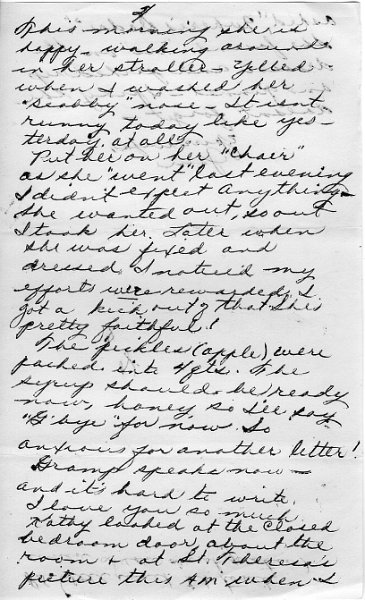 This morning she is
happy - walking around
in her stroller - Yelled
when I washed her
"scabby" nose - It isn't
runny today like yes-
terday, at all.
Put her on her "Chair"
as she "went" last evening
I didn't expect anything -
she wanted out, so out
I took her. Later when
she was fixed and
dressed I noticed my
efforts were rewarded. I
got a kick out of that. She's
pretty faithful!
The pickles (apple) were
packed into 4 pts. The
syrup should be ready
now, honey, so I'll say
"G'bye" for now. So
anxious for another letter!
Gramp speaks now -
and it's hard to write.
I love you so much.
Kathy looked at the closed
bedroom door, about the
room & at St. Theresa's
picture this AM when I